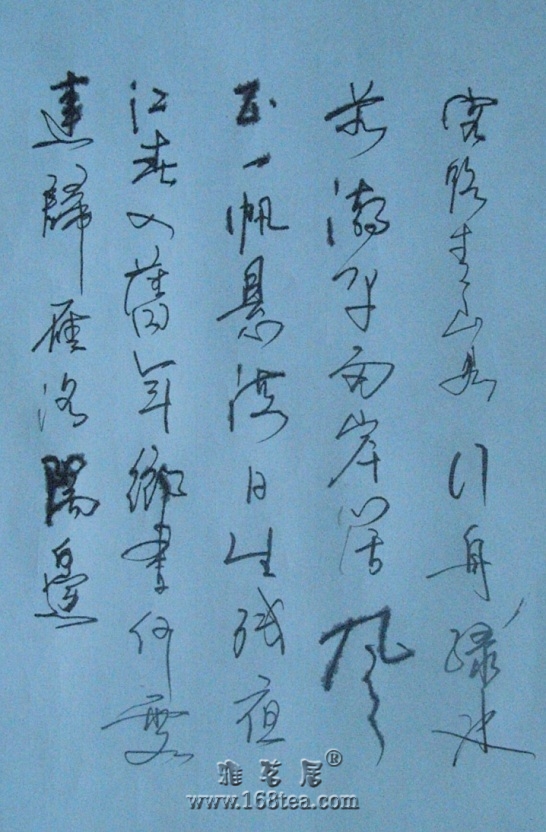 客路青山外行舟綠水
前潮平两岸闊風
正一帆悬海日生残夜
江春入舊年鄉書何處
達歸雁洛陽邊
雅茗居®
www.168tea.com